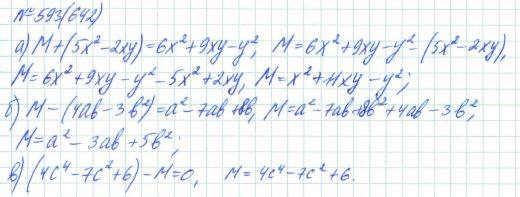 №593(642)
а) M+(5x²-2xy)=6x²+9xy-y², M=6x²+9xy-y²-(5x²-2xy),
M=6x²+9xy-y²-5x²+2xy, M=x²+11xy-y²;
б) M-(4ab-3b²)=a²-7ab+8b, M=a²-7ab+8b²+4ab-3b²,
M=a²-3ab+5b²;
в) (4c⁴-7c²+6)-M=0, M=4c⁴-7c²+6.